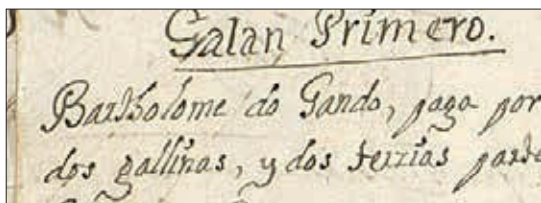 Galan Primero.
Bartholome do Gando, paga por
dos gallinas, y dos terzias parte